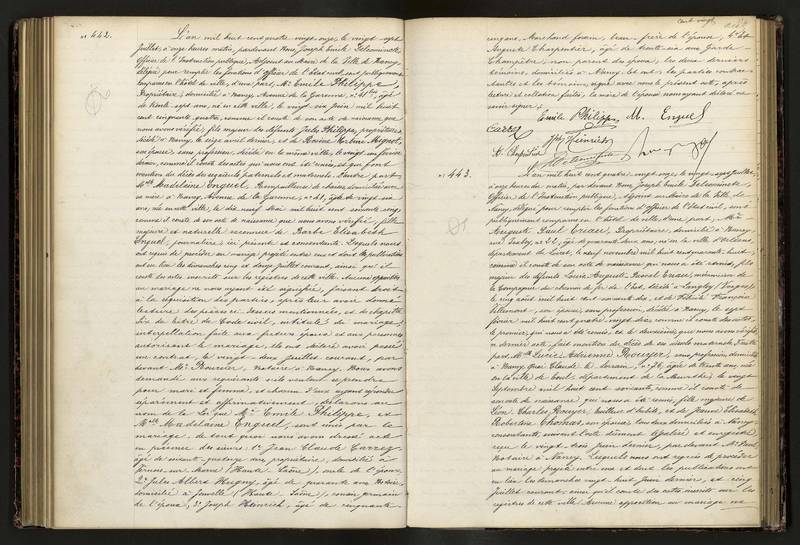 N° 442.
L'an mil huit cent quatre vingt onze, le vingt sept
juillet, à onze heures matin, pardevant Nous, Joseph Emile
Officier de l'Instruction publique, Adjoint au Maire de la Ville de Nancy,
délégué pour remplir les fonctions d'officier de l'état civil, sont publiquement
comparus en l'hôtel de ville, d'une part, Mr Emile Philippe,
Propriétaire, domicilié à Nancy, Avenue de la Garenne, n° 41, âgé
de trente sept ans, né en cette ville, le vingt six juin mil huit
cent cinquante quatre, comme il conste de son acte de naissance que
nous avons vérifié, fils majeur des défunts Jules Philippe, propriétaire,
décédé à Nancy, le seize avril dernier, et de
son épouse, sans profession, décédée en la même ville, le vingt
dernier, comme il conste des actes qui nous ont été remis, et qui font
mention du décès des ayeuls paternels et maternels. D'autre part,
Melle Madelaine Enguel, Rempailleuse de chaises, domiciliée avec
sa mère à Nancy, Avenue de la Garenne, n° 41, âgée de vingt six
ans, née en cette ville, le dix neuf Mai mil huit cent soixante cinq,
comme il conste de son acte de naissance que nous avons vérifié, fille
majeure et naturelle reconnue de Barbe Elisabeth
Enguel, journalière, ici présente et consentante. Lesquels nous
ont requis de procéder au mariage projeté entre eux et dont les publications
ont eu lieu les dimanches cinq et douze juillet courant, ainsi qu'il
conste des actes inscrits sur les registres de cette ville. Aucune opposition
au mariage ne nous ayant été signifiée, faisant droit
à la réquisition des parties, après leur avoir donné
lecture des pièces ci-dessus mentionnées, et du chapitre
six du titre du Code civil, intitulé du mariage,
interpellation faite aux futurs époux et aux personnes
autorisant le mariage, ils ont déclaré avoir passé
un contrat, le vingt-deux juillet courant, par
devant Me notaire à Nancy. Nous avons
demandé aux requérants s'ils veulent se prendre
pour mari et femme, et chacun d'eux ayant répondu
séparément et affirmativement, déclarons au
nom de la Loi que Mr Emile Philippe, et
Melle Madelaine Enguel, sont unis par le
mariage; de tout quoi nous avons dressé acte
en présence des sieurs 1° Jean Claude
âgé de soixante quatorze ans, propriétaire, domicilié à
(Haute Saône), oncle de l'époux,
2° Jules Albert Hugny, âgé de quarante ans, Notaire,
domicilié à Jonvelle (Haute Saône), cousin germain
de l'époux, 3° Joseph Heinrich, âgé de cinquante
cinq ans, Marchand forain, beau-frère de l'épouse, 4° et
Auguste Charpentier, âgé de trente six ans, Garde
Champêtre, non parent des époux, les deux derniers
témoins, domiciliés à Nancy. Et ont les parties contrac-
tantes et les témoins, signé avec nous le présent acte, après
lecture et collation faites, la mère de l'épouse nous ayant déclaré ne
savoir signer.
Emile Philippe M. Enguel
N° 443.
L'an mil huit cent quatre vingt onze, le vingt sept juillet,
à onze heures du matin, par devant Nous, Joseph Emile
Officier de l'Instruction publique, Adjoint au Maire de la Ville de
Nancy, délégué pour remplir les fonctions d'officier de l'état civil, sont
publiquement comparus en l'hôtel de ville, d'une part, Mr
Auguste Paul Propriétaire, domicilié à Nancy,
né en la ville d'Orléans,
département du Loiret, le neuf novembre mil huit cent quarante huit,
comme il conste de son acte de naissance qui nous a été remis, fils
majeur des défunts Louis Auguste mécanicien de
la Compagnie du chemin de fer de l'Est, décédé à
le cinq août mil huit cent soixante dix, et de Françoise
son épouse, sans profession, décédée à Nancy, le sept
février mil huit cent quatre vingt dix, comme il conste des actes,
le premier, qui nous a été remis, et le deuxième, que nous avons vérifié,
part, Melle Lucie Adrienne Rouyer, sans profession, domiciliée
à Nancy, Quai Claude le Lorrain, âgée de trente ans, née
en la ville de Toul, département de la Meurthe, le vingt
Septembre mil huit cent soixante, comme il conste de
son acte de naissance qui nous a été remis, fille majeure de
Charles Rouyer, Tailleur d'habits, et de Jeanne Elisabeth
Thomas, son épouse, tous deux domiciliés à Nancy,
consentants, suivant l'acte dûment légalisé et enregistré,
reçu le vingt trois juin dernier, par devant Me
Notaire à Nancy. Lesquels nous ont requis de procéder
au mariage projeté entre eux et dont les publications ont
eu lieu les dimanches vingt huit juin dernier, et cinq
juillet courant, ainsi qu'il conste des actes inscrits sur les
registres de cette ville. Aucune opposition au mariage ne